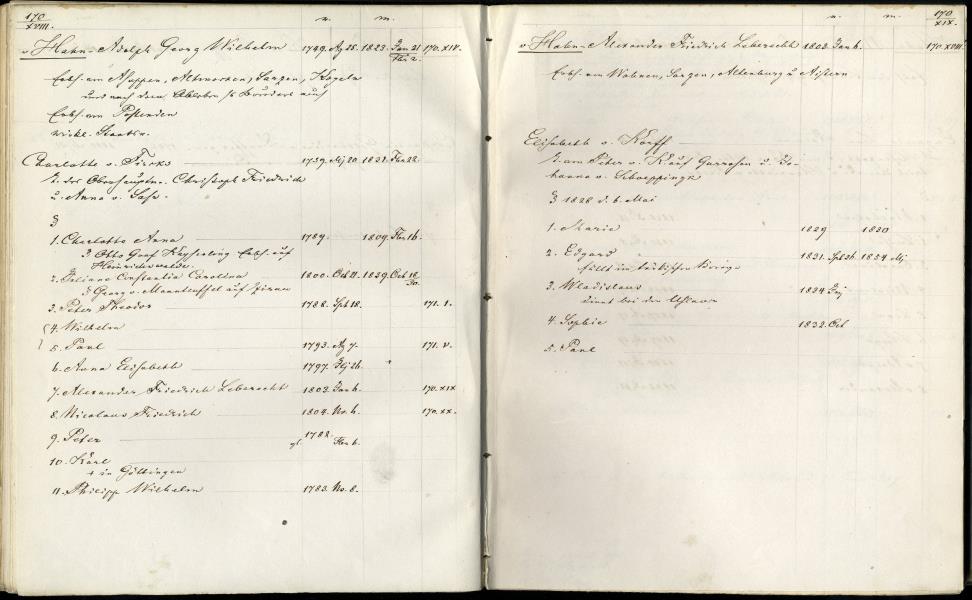 170
XVIII.
n. m.
v Hahn - Adolph Georg Wilhelm 1749. Ag 25. 1823. Jan 21 170. XIV.
Fbr 2.
Erbh. am Asuppen, Altmocken, Sargen, Kogeln
und nach dem Absterben s. Bruders auf
Erbh. am Postenden
wirkl. Staatsr.
Charlotte v. Fircks 1759. Mz 20. 1821. Fbr 22.
T. des Oberhauptm. Christoph Friedrich
u. Anna v. Sass.
§
1. Charlotte Anna 1789. 1809. Fbr 16.
Otto Graf Keyserling Erbh. auf
Heinrichswalde.
2. Juliane Constantia Carolina 1800. Oct 11. 1829. Oct 18.
Georg v. Manteuffel auf Zirau
3. Peter Theodor 1788. Spt 18. 171. I.
4. Wilhelm
5. Paul 1793. Ag 7. 171. V.
6. Anna Elisabeth 1797. 26.
7. Alexander Friedrich Leberecht 1802. Jan 6. 170. XIX
8. Nicolaus Friedrich 1804. No. 6. 170. XX.
9. Peter 1782. Fbr 6.
10. Karl
+ in Göttingen
11. Philipp Wilhelm 1783. No. 8.
170
XIX.
n. m.
v Hahn - Alexander Friedrich Leberecht 1802. Jan 6. 170. XVIII.
Erbh. am Wahnen, Sargen, Altenburg u
Elisabeth v. Korff
T. am Peter v. Korff u. Jo-
hanna v. Schoeppingk
§ 1828 d. 6. Mai
1. Marie 1829 1830
2. Edgard 1831. Spt 26. 1854. Mz
fällt im türkischen Kriege
3. Wladislaus 1834
dient bei den Uhlanen
4. Sophie 1832. Oct
5. Paul